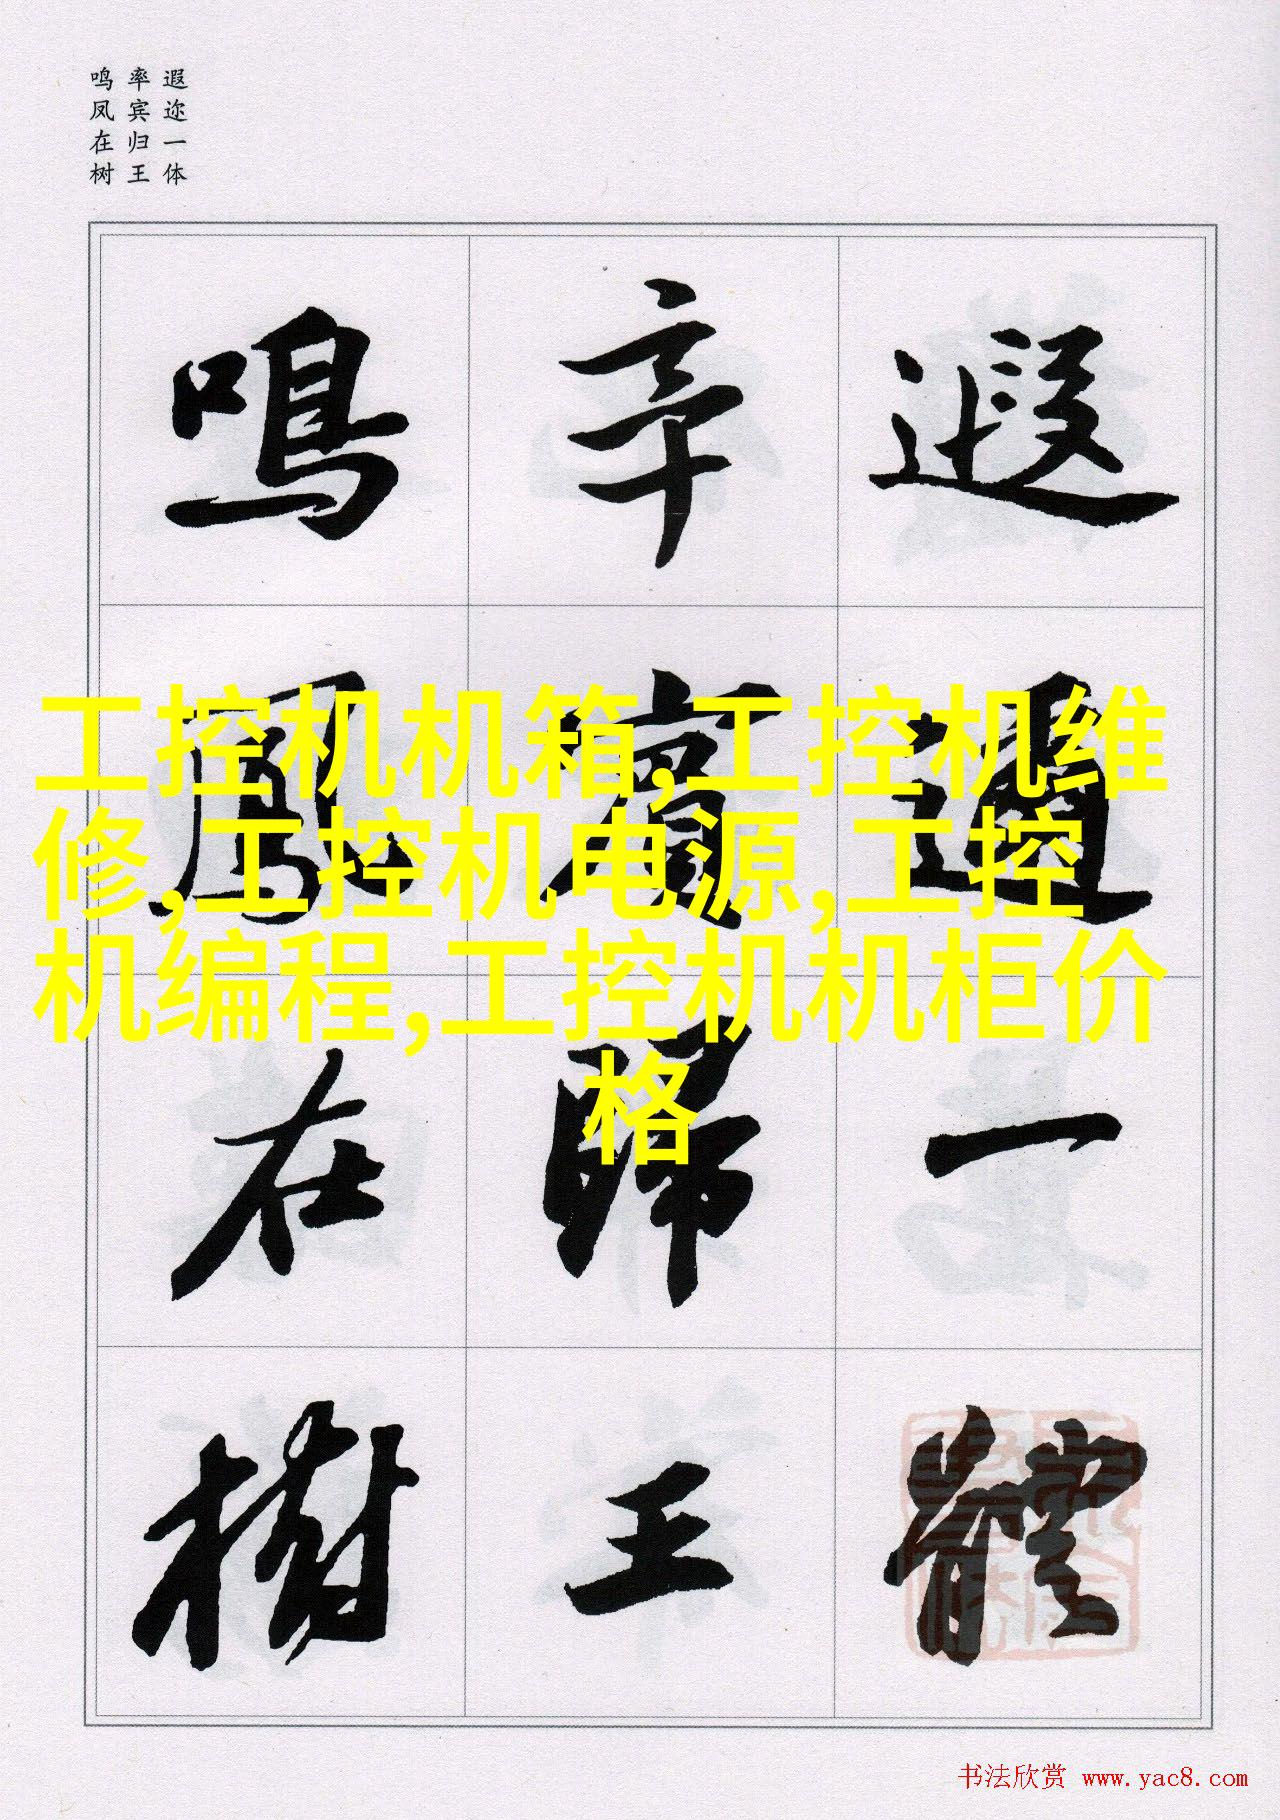 遐迩一体
率宾归王
鸣凤在树
遐邇一體
率賓歸王
鳴鳳在樹
工控机机箱,工控机维
修,工控机电源,工控
机编程,工控机机柜价
格
书法欣赏 www.yac8.com